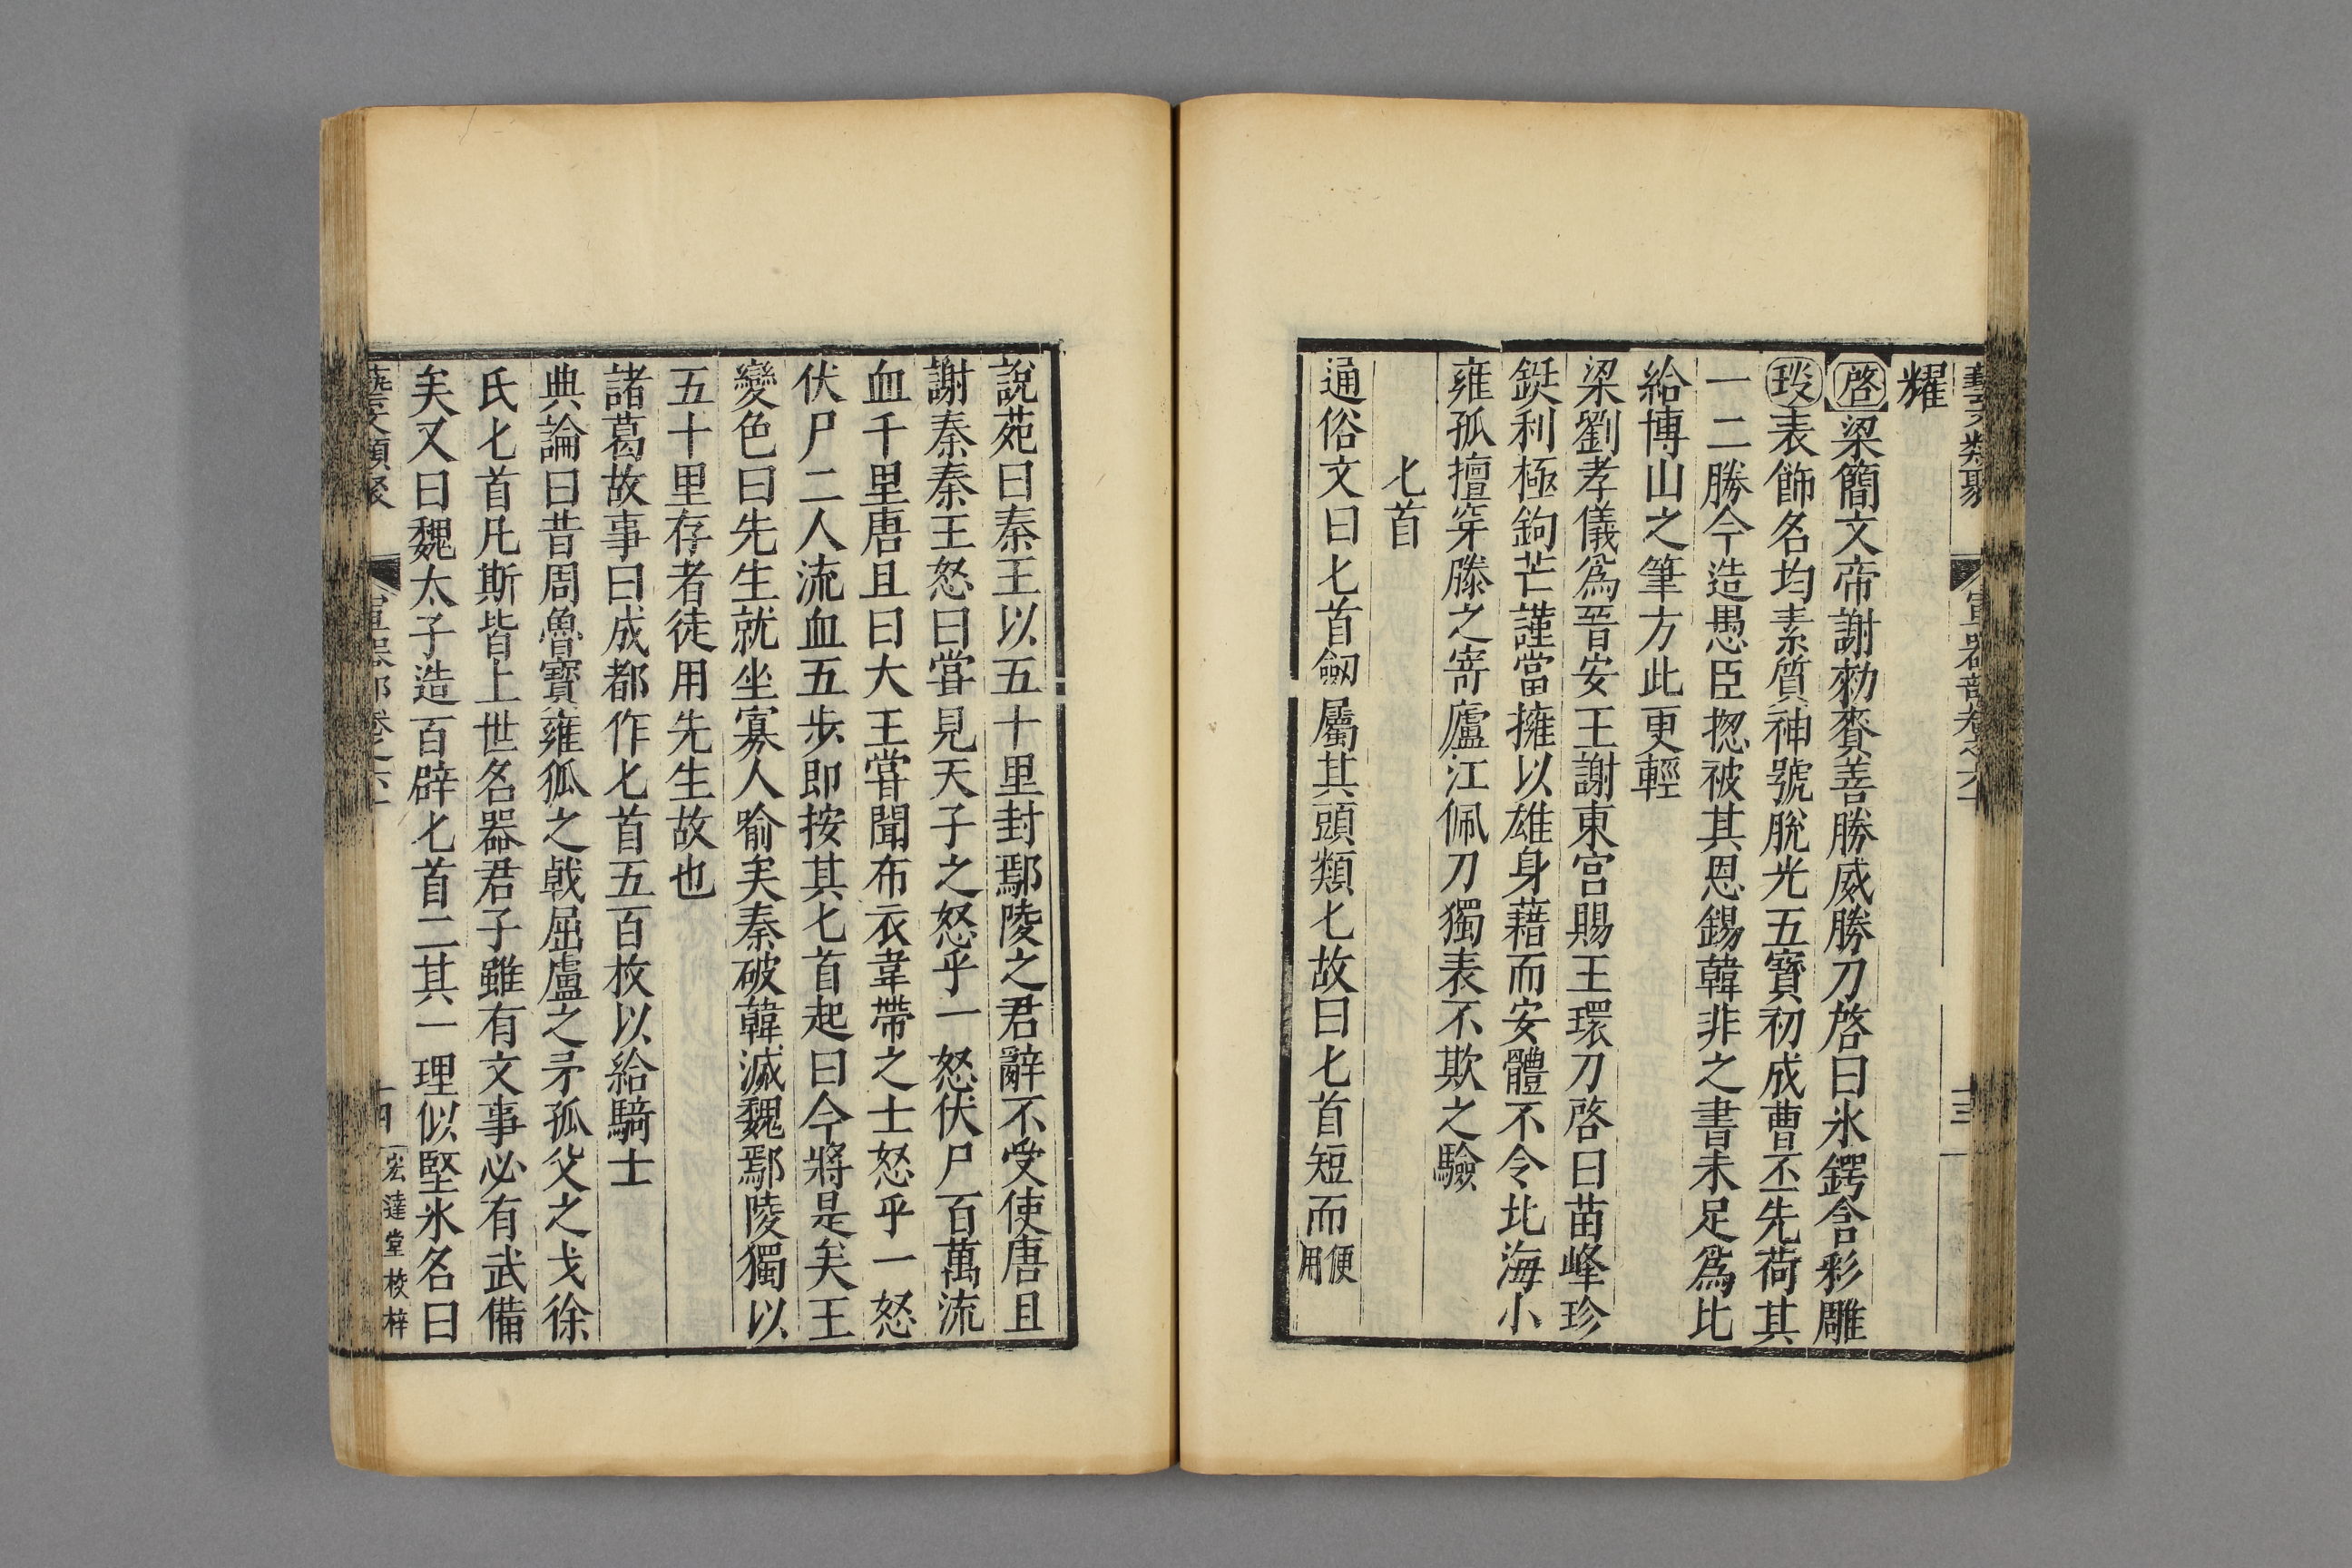 耀
啓梁簡文帝謝勑賚善勝威勝刀啓曰氷鍔含彩雕
琰表飾名均素質神號脫光五寳初成曹丕先荷其
一二勝今造愚臣揔被其恩錫韓非之書未足爲比
給博山之筆方此更輕
梁劉孝儀爲晉安王謝東宮賜王環刀啓曰苗峰珍
鋌利極鉤芒謹當擁以雄身藉而安體不令北海小
雍孤擅穿滕之寄廬江佩刀獨表不欺之驗
匕首
通俗文曰匕首劒屬其頭類匕故曰匕首短而便用
說苑曰秦王以五十里封鄢陵之君辭不受使唐且
謝秦秦王怒曰甞見天子之怒乎一怒伏尸百萬流
血千里唐且曰大王甞聞布衣韋帶之士怒乎一怒
伏尸二人流血五步即按其匕首起曰今將是矣王
變色曰先生就坐寡人喻矣秦破韓滅魏鄢陵獨以
五十里存者徒用先生故也
諸葛故事曰成都作匕首五百枚以給騎士
典論曰昔周魯寳雍狐之戟屈盧之矛孤父之戈徐
氏匕首凡斯皆上世名器君子雖有文事必有武備
矣又曰魏太子造百辟匕首二其一理似堅氷名曰
宏達堂校梓